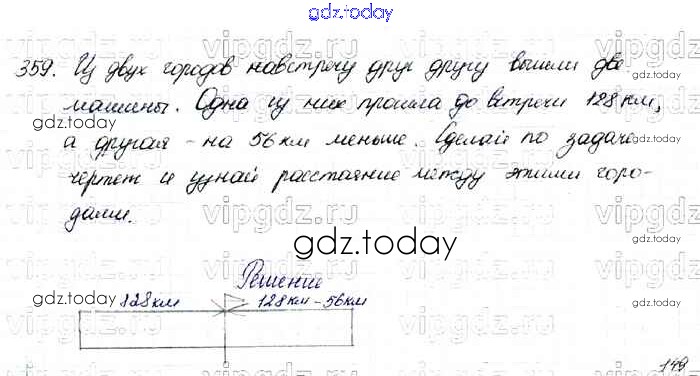 gdz.today
359. Из двух городов навстречу друг другу вышли две
машины. Одна из них прошла до встречи 128 км,
а другая - на 56 км меньше. Сделай по задаче
чертеж и узнай расстояние между этими горо-
дами.
gdz.today
Решение
128км 128км-56км
149